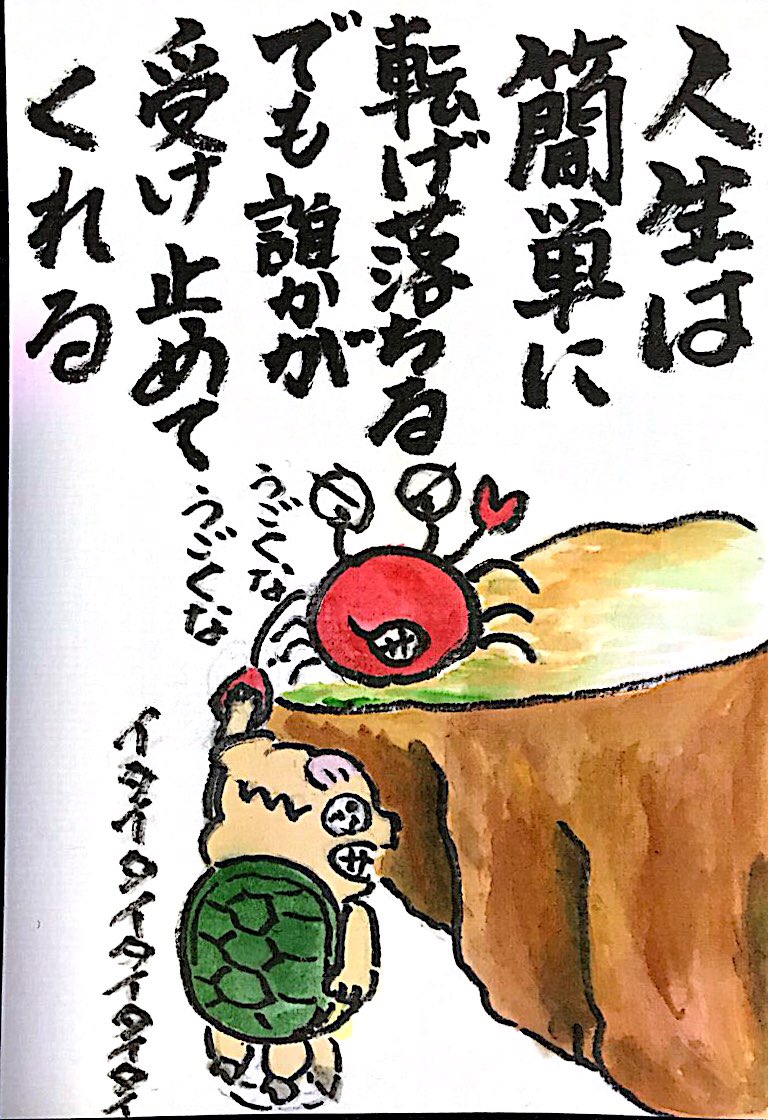 人生は
簡単に
転げ落ちる
でも誰かが
受け止めて
くれる
うごくな
うごくな
イタイイタイイタイタイタイ